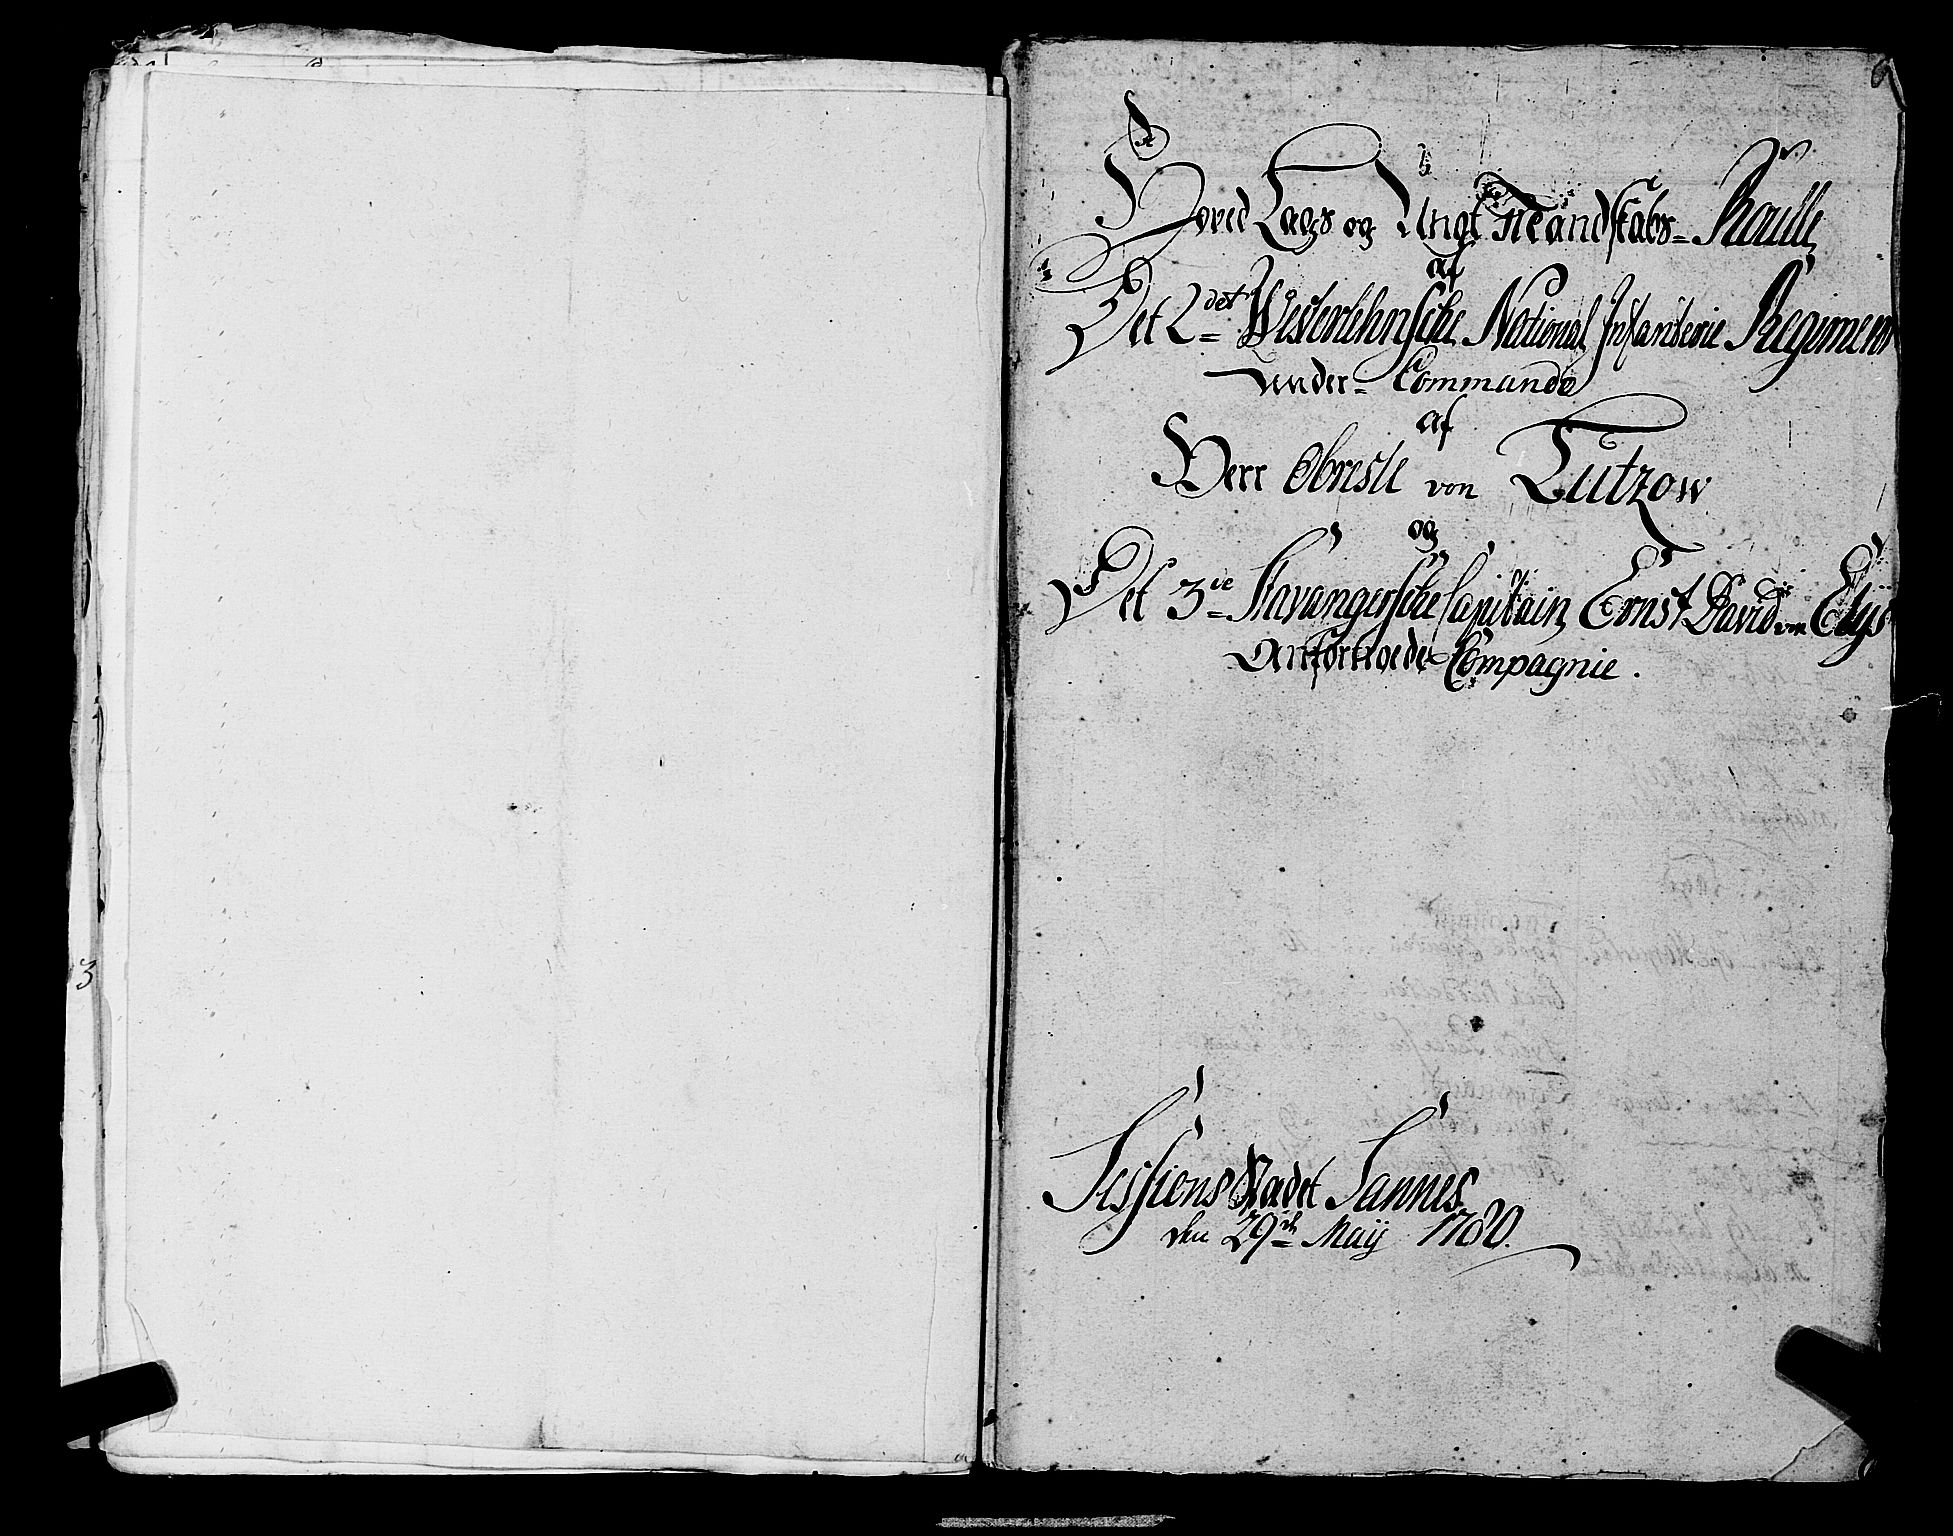 Hoved Lægs og Ungt Mandskabs= Roulle
af
Det 2det Westerlehnsche National Infanterie Regiment
Under= Commando
af
Herr Obriste von Lutzow
og
Det 3die Stavangersche Capitain Ernst David von
Anfortroede Compagnie.
3
Sessions Stædet Sannes
den 29de Maij 1780.